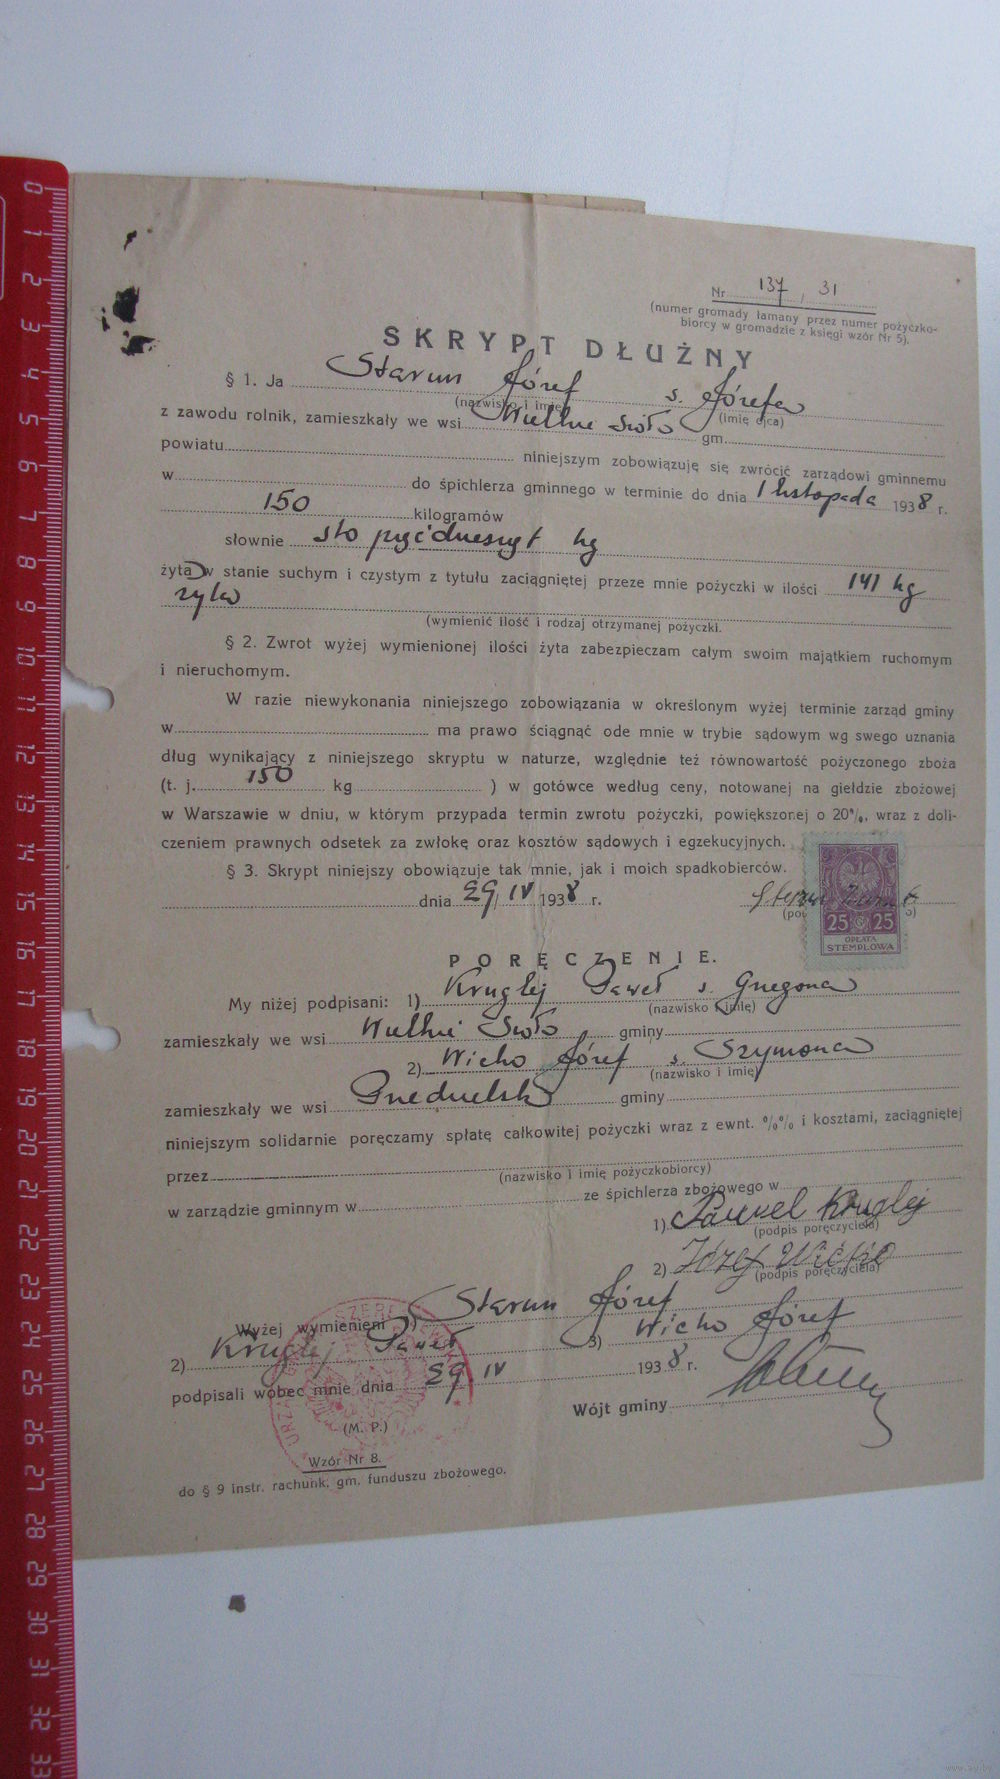 Nr 137, 31
(numer gromady łamany przez numer pożyczko-
biorcy w gromadzie z księgi wzór Nr 5).
SKRYPT DŁUŻNY
§ 1. Ja Starun Józef s. Józefa
(nazwisko i imię) (imię ojca)
z zawodu rolnik, zamieszkały we wsi Wielkie Sioło gm.
powiatu niniejszym zobowiązuję się zwrócić zarządowi gminnemu
w do śpichlerza gminnego w terminie do dnia 1 listopada 1938 r.
150 kilogramów
słownie sto pięćdziesiąt kg
żyta w stanie suchym i czystym z tytułu zaciągniętej przeze mnie pożyczki w ilości 141 kg
żyta
(wymienić ilość i rodzaj otrzymanej pożyczki.
§ 2. Zwrot wyżej wymienionej ilości żyta zabezpieczam całym swoim majątkiem ruchomym
i nieruchomym.
W razie niewykonania niniejszego zobowiązania w określonym wyżej terminie zarząd gminy
w ma prawo ściągnąć ode mnie w trybie sądowym wg swego uznania
dług wynikający z niniejszego skryptu w naturze, względnie też równowartość pożyczonego zboża
(t. j. 150 kg ) w gotówce według ceny, notowanej na giełdzie zbożowej
w Warszawie w dniu, w którym przypada termin zwrotu pożyczki, powiększonej o 20%, wraz z doli-
czeniem prawnych odsetek za zwłokę oraz kosztów sądowych i egzekucyjnych.
§ 3. Skrypt niniejszy obowiązuje tak mnie, jak i moich spadkobierców.
dnia 29 IV 1938 r.
25 25
OPŁATA
STEMPLOWA
PORĘCZENIE.
My niżej podpisani: 1) Kruglej Paweł s. Grzegorza
(nazwisko i imię)
zamieszkały we wsi Wielkie Sioło gminy
2) Wicho Józef s. Szymona
(nazwisko i imię)
zamieszkały we wsi gminy
niniejszym solidarnie poręczamy spłatę całkowitej pożyczki wraz z ewnt. %% i kosztami, zaciągniętej
przez
(nazwisko i imię pożyczkobiorcy)
w zarządzie gminnym w ze śpichlerza zbożowego w
1) Pawel Kruglej
(podpis poręczyciela)
2) Józef Wicho
(podpis poręczyciela)
Wyżej wymienieni 1) Starun Józef
2) Kruglej Paweł 3) Wicho Józef
podpisali wobec mnie dnia 29 IV 1938 r.
Wójt gminy
(M. P.)
Wzór Nr 8.
do § 9 instr. rachunk. gm. funduszu zbożowego.
0 1 2 3 4 5 6 7 8 9 10 11 12 13 14 15 16 17 18 19 20 21 22 23 24 25 26 27 28 29 30 31 32 33